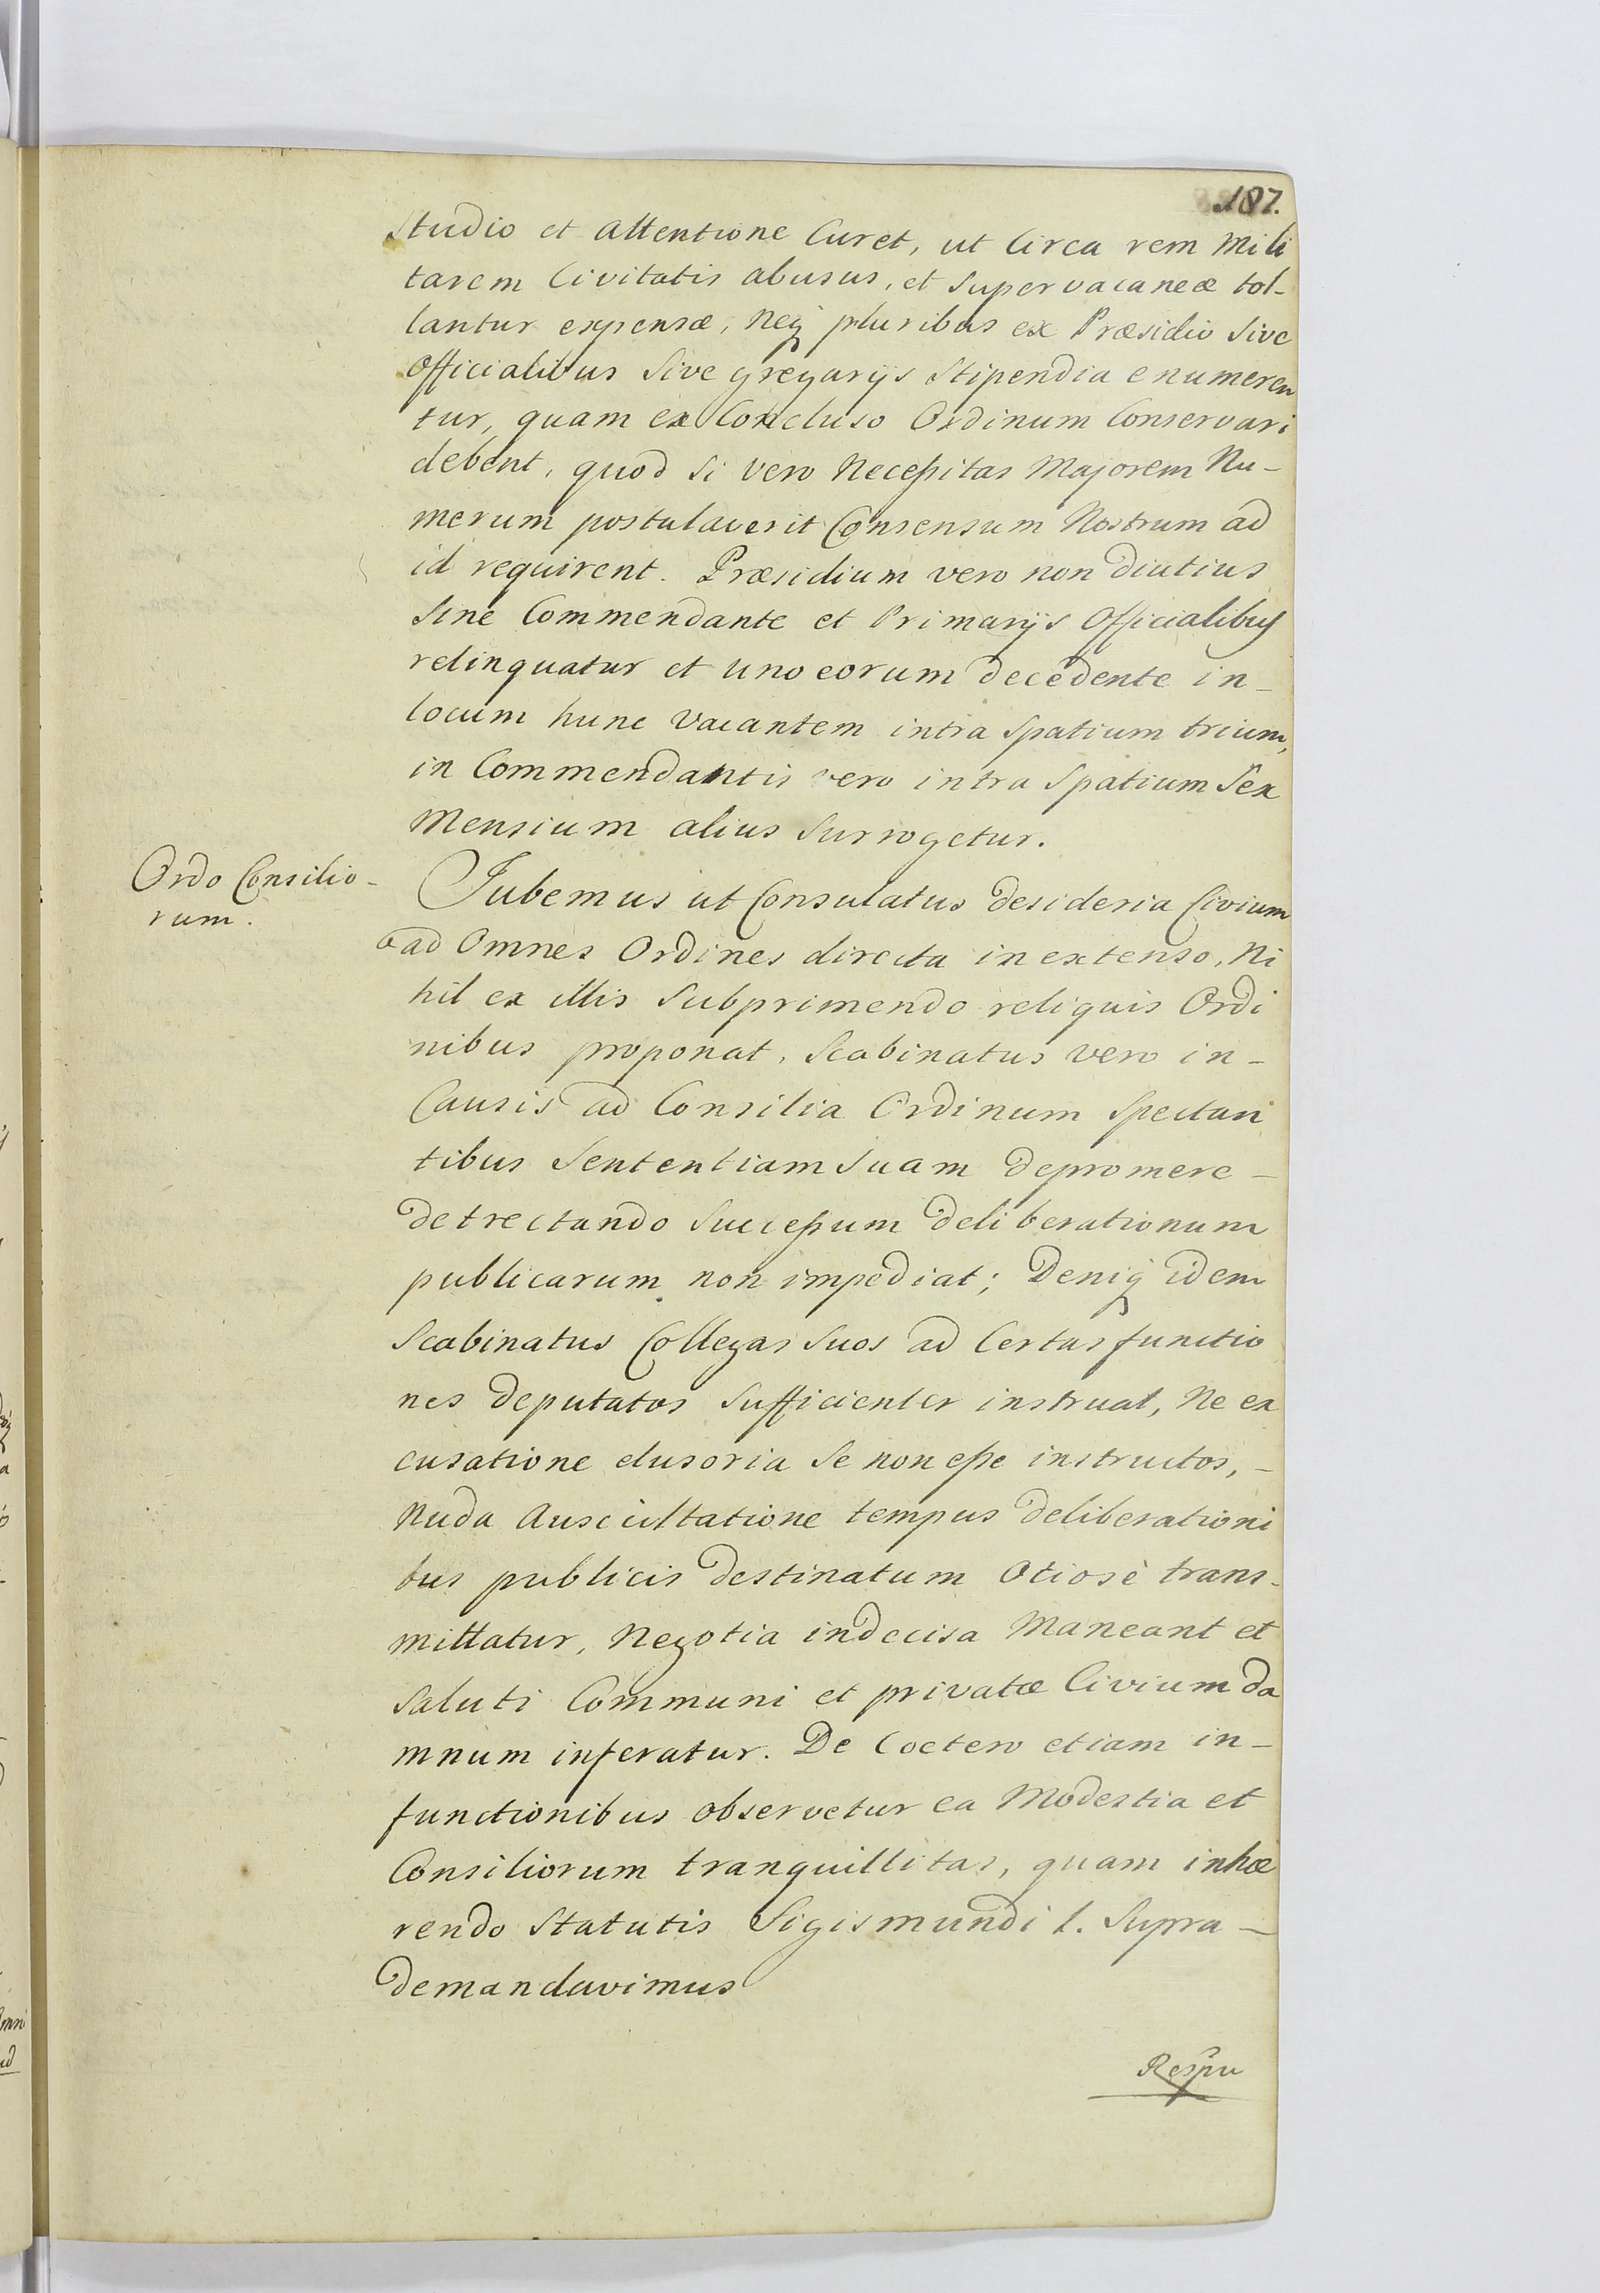 187.
studio et attentione Curet, ut Circa rem Mili
tarem Civitatis abusus, et supervacaneæ tol-
lantur expensæ, neq pluribus ex Præsidio sive
Officialibus sive gregarijs Stipendia enumeren
tur, quam ex Concluso Ordinum Conservari
debent, quod si vero Necessitas Majorem Nu-
merum postulaverit Consensum Nostrum ad
id requirent. Præsidium vero non diutius
sine Commendante et Primarijs Officialibus
relinquatur et uno eorum decedente in-
locum hunc vacantem intra spatium trium,
in Commendantis vero intra Spatium Sex
Mensium alius surrogetur.
Ordo Consilio-
rum.
Jubemus ut Consulatus desideria Civium
ad Omnes Ordines directa in extenso, Ni
hil ex illis subprimendo reliquis Ordi
nibus proponat, Scabinatus vero in-
Causis ad Consilia Ordinum Spectan
tibus Sententiam suam depromere-
detrectando successum deliberationum
publicarum non impediat; Deniq idem
Scabinatus Collegas suos ad Certas functio
nes deputatos sufficienter instruat, Ne ex
cusatione elusoria se non esse instructos,-
nuda Auscultatione tempus deliberationi
bus publicis destinatum Otiosè trans-
mittatur, Negotia indecisa Maneant et
saluti Communi et privatæ Civium da
mnum inferatur. De Coetero etiam in-
functionibus observetur ea Modestia et
Consiliorum tranquillitas, quam inhæ
rendo Statutis Sigismundi 1. Supra-
demandavimus
Respu